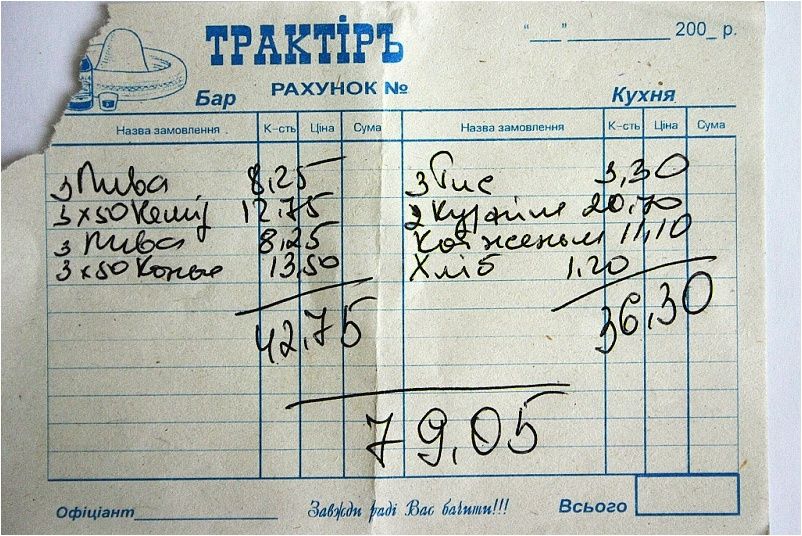 ТРАКТІРЪ
"___"__________ 200_ р.
Бар РАХУНОК № Кухня
Назва замовлення К-сть Ціна Сума Назва замовлення К-сть Ціна Сума
3 Пива 8,25 3 Рис 3,30
3×50 12,75 2 20,70
3 Пива 8,25 11,10
3×50 Конья 13,50 Хліб 1,20
42,75 36,30
79,05
Офіціант______________ Завжди раді Вас бачити!!! Всього